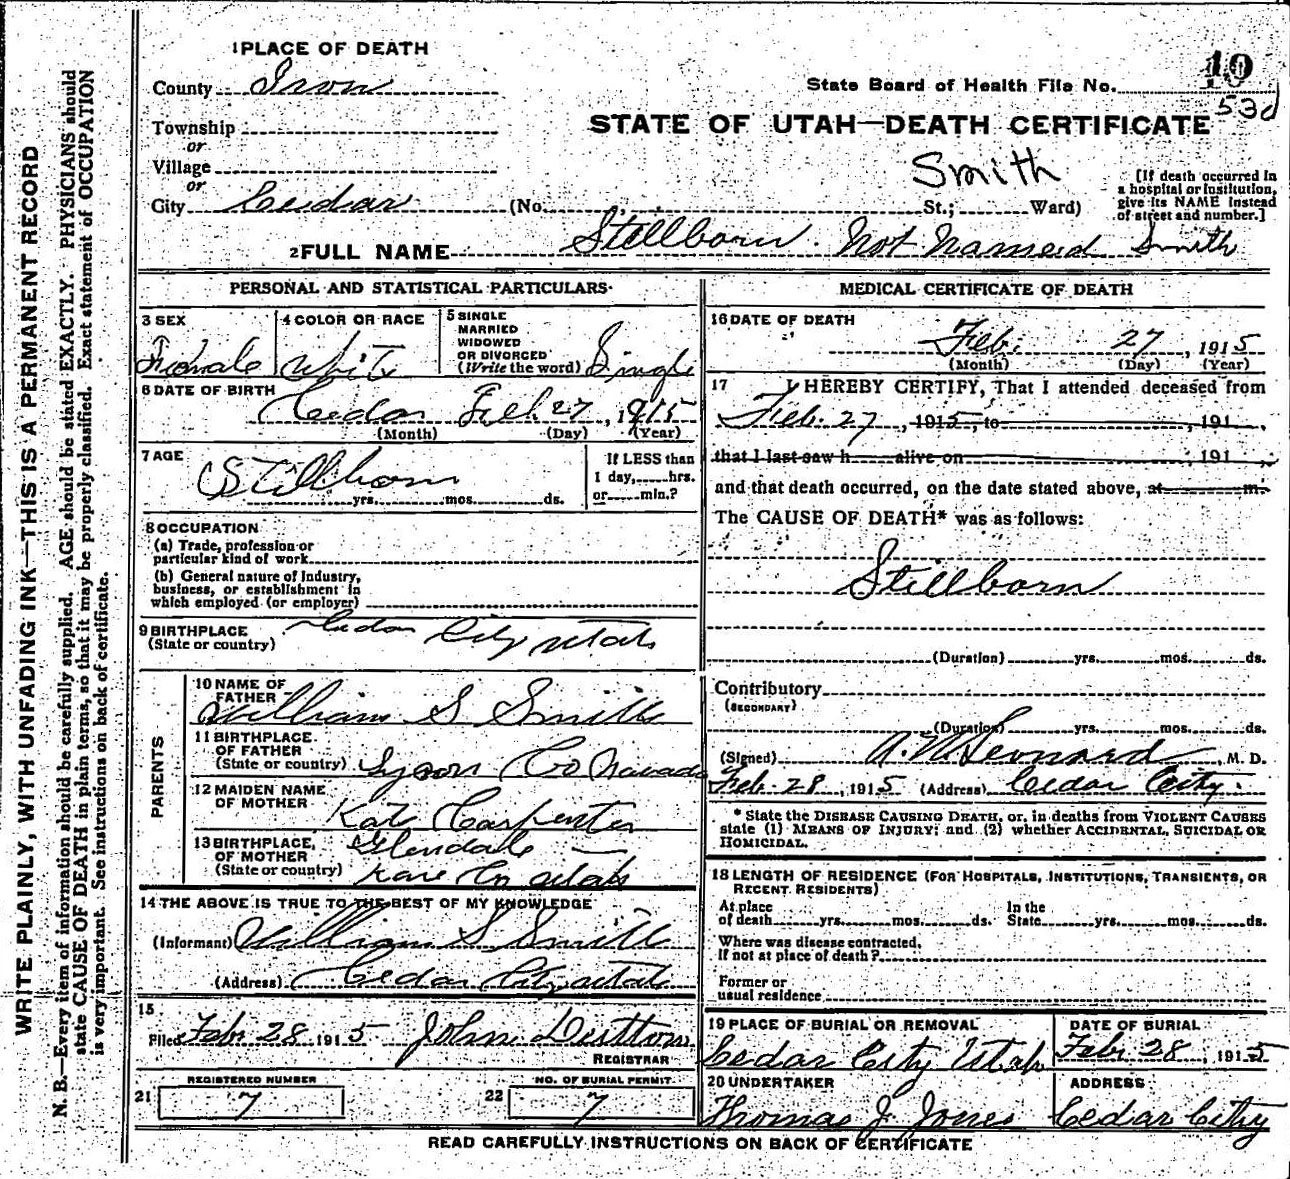 WRITE PLAINLY, WITH UNFADING INK—THIS IS A PERMANENT RECORD
N. B.—Every item of information should be carefully supplied. AGE should be stated EXACTLY. PHYSICIANS should
state CAUSE OF DEATH in plain terms, so that it may be properly classified. Exact statement of OCCUPATION
is very important. See instructions on back of certificate.
1 PLACE OF DEATH
County Iron
State Board of Health File No. 10
530
Township
or
STATE OF UTAH—DEATH CERTIFICATE
Village
or
Smith
[If death occurred in
a hospital or institution,
give its NAME instead
of street and number.]
City Cedar (No. St.; Ward)
2 FULL NAME Stillborn. Not Named Smith
PERSONAL AND STATISTICAL PARTICULARS
3 SEX
Female
4 COLOR OR RACE
White
5 SINGLE
MARRIED
WIDOWED
OR DIVORCED
(Write the word) Single
6 DATE OF BIRTH
Cedar Feb. 27, 1915
(Month) (Day) (Year)
7 AGE
Stillborn
yrs. mos. ds.
If LESS than
1 day, hrs.
or min.?
8 OCCUPATION
(a) Trade, profession or
particular kind of work
(b) General nature of Industry,
business, or establishment in
which employed (or employer)
9 BIRTHPLACE
(State or country)
Cedar City Utah
PARENTS
10 NAME OF
FATHER
William S Smith
11 BIRTHPLACE
OF FATHER
(State or country) Lyson Co Navada
12 MAIDEN NAME
OF MOTHER
Kate Carpenter
13 BIRTHPLACE,
OF MOTHER
(State or country)
Glendale
Kane Co Utah
14 THE ABOVE IS TRUE TO THE BEST OF MY KNOWLEDGE
(Informant) William S Smith
(Address) Cedar City Utah
15
Filed Feb 28 1915 John Dutton
REGISTRAR
21
REGISTERED NUMBER
7
22
NO. OF BURIAL PERMIT
7
MEDICAL CERTIFICATE OF DEATH
16 DATE OF DEATH
Feb. 27, 1915
(Month) (Day) (Year)
17 I HEREBY CERTIFY, That I attended deceased from
Feb. 27, 1915, to , 191 ,
that I last saw h alive on , 191 ,
and that death occurred, on the date stated above, at m.
The CAUSE OF DEATH* was as follows:
Stillborn
(Duration) yrs. mos. ds.
Contributory
(SECONDARY)
(Duration) yrs. mos. ds.
(Signed) A. N. Leonard, M. D.
Feb. 28, 1915 (Address) Cedar City.
* State the DISEASE CAUSING DEATH, or, in deaths from VIOLENT CAUSES
state (1) MEANS OF INJURY; and (2) whether ACCIDENTAL, SUICIDAL OR
HOMICIDAL.
18 LENGTH OF RESIDENCE (FOR HOSPITALS, INSTITUTIONS, TRANSIENTS, OR
RECENT RESIDENTS)
At place
of death yrs. mos. ds.
In the
State yrs. mos. ds.
Where was disease contracted,
If not at place of death?
Former or
usual residence
19 PLACE OF BURIAL OR REMOVAL
Cedar City Utah
DATE OF BURIAL
Feb. 28, 1915
20 UNDERTAKER
Thomas J Jones
ADDRESS
Cedar City
READ CAREFULLY INSTRUCTIONS ON BACK OF CERTIFICATE